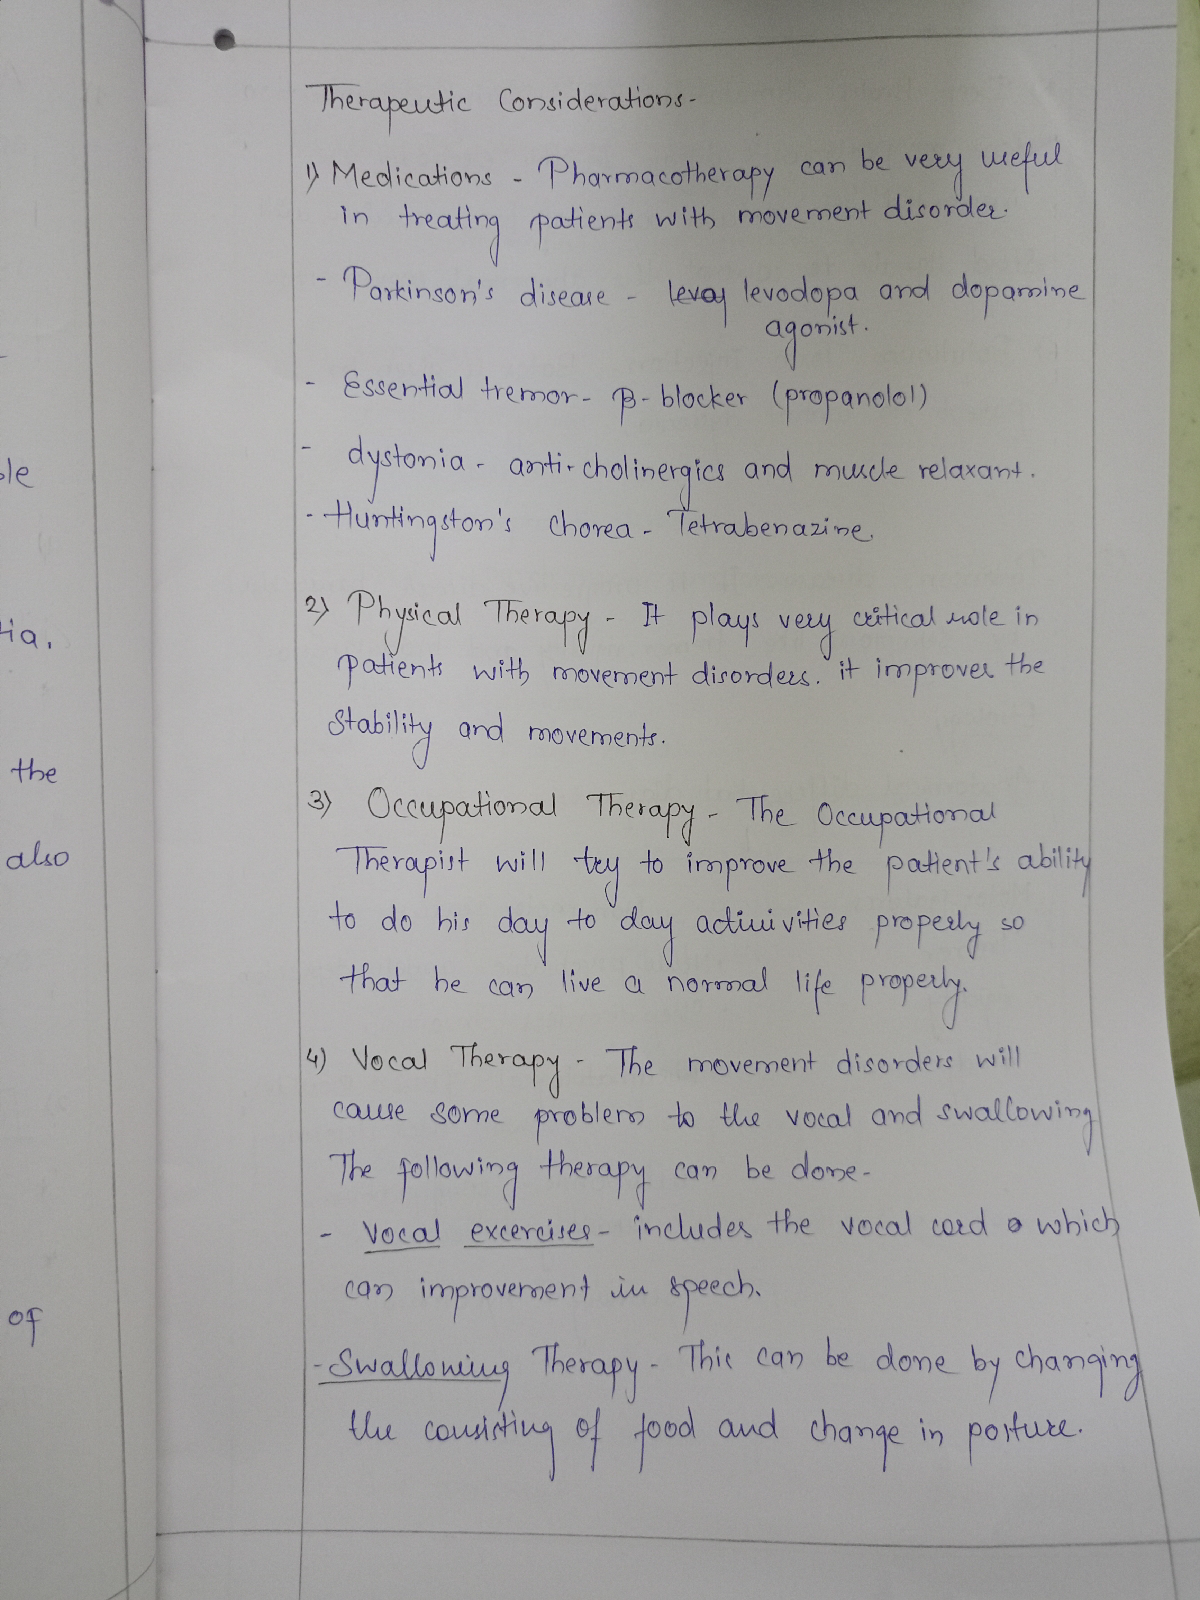 Therapeutic Considerations-
1) Medications - Pharmacotherapy can be very useful
in treating patients with movement disorder.
- Parkinson's disease - levodopa and dopamine
agonist.
- Essential tremor - β-blocker (propanolol)
- dystonia - anti-cholinergics and muscle relaxant.
- Huntingston's chorea - Tetrabenazine.
2) Physical Therapy - It plays very critical role in
patients with movement disorders. it improves the
stability and movements.
3) Occupational Therapy - The Occupational
Therapist will try to improve the patient's ability
to do his day to day actiuivities properly so
that he can live a normal life properly.
4) Vocal Therapy - The movement disorders will
cause some problem to the vocal and swallowing
The following therapy can be done-
- Vocal excercises - includes the vocal cord which
can improvement in speech.
- Swallowing Therapy - This can be done by changing
the consisting of food and change in posture.
ia.
the
also
of